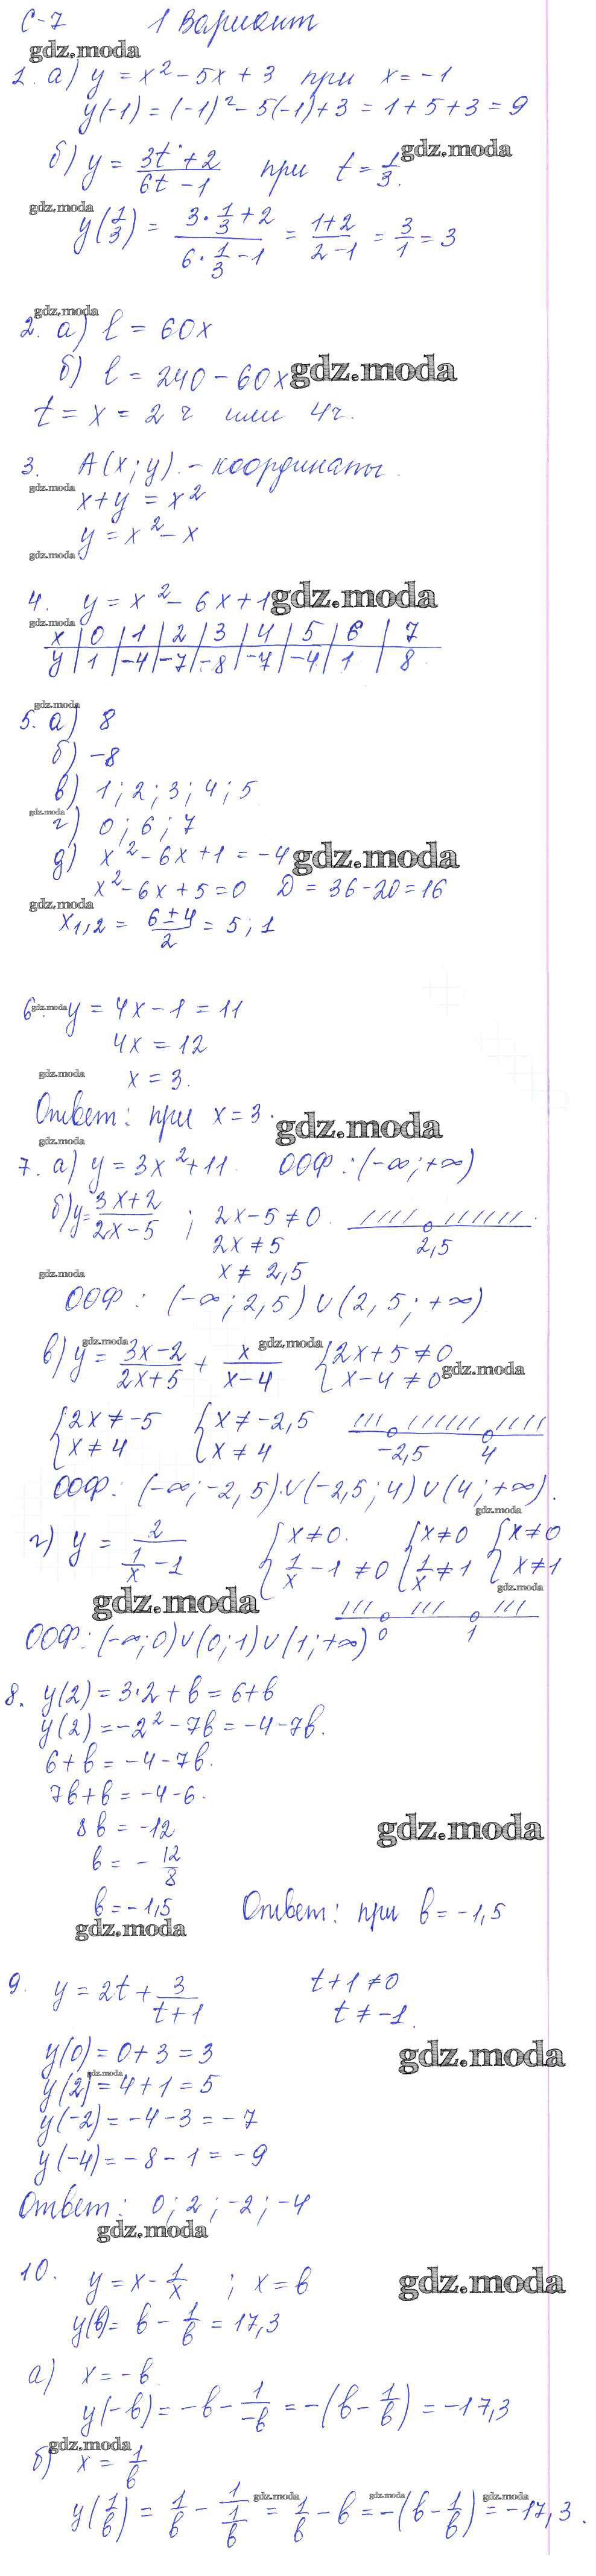 С-7 1 Вариант
gdz.moda
1. а) y = x² - 5x + 3 при x = -1
y(-1) = (-1)² - 5(-1) + 3 = 1 + 5 + 3 = 9
б) y = (3t + 2)/(6t - 1) при t = 1/3.
gdz.moda
gdz.moda
y(1/3) = (3·1/3 + 2)/(6·1/3 - 1) = (1+2)/(2-1) = 3/1 = 3
gdz.moda
2. а) l = 60x
б) l = 240 - 60x
gdz.moda
t = x = 2 ч или 4 ч.
3. A(x; y). - координаты.
gdz.moda
x + y = x²
y = x² - x
gdz.moda
4. y = x² - 6x + 1
gdz.moda
gdz.moda
x | 0 | 1 | 2 | 3 | 4 | 5 | 6 | 7
y | 1 | -4 | -7 | -8 | -7 | -4 | 1 | 8
gdz.moda
5. а) 8
б) -8
в) 1; 2; 3; 4; 5
gdz.moda
г) 0; 6; 7
д) x² - 6x + 1 = -4
gdz.moda
x² - 6x + 5 = 0 D = 36 - 20 = 16
gdz.moda
x1,2 = (6 ± 4)/2 = 5; 1
6. y = 4x - 1 = 11
gdz.moda
4x = 12
gdz.moda
x = 3.
Ответ: при x = 3.
gdz.moda
gdz.moda
7. а) y = 3x² + 11 ООФ: (-∞; +∞)
б) y = (3x + 2)/(2x - 5) ; 2x - 5 ≠ 0.
2x ≠ 5 2,5
gdz.moda
x ≠ 2,5
ООФ: (-∞; 2,5) ∪ (2,5; +∞)
gdz.moda
gdz.moda
в) y = (3x - 2)/(2x + 5) + x/(x - 4) { 2x + 5 ≠ 0
x - 4 ≠ 0
gdz.moda
{ 2x ≠ -5 { x ≠ -2,5
x ≠ 4 x ≠ 4 -2,5 4
ООФ: (-∞; -2,5) ∪ (-2,5; 4) ∪ (4; +∞).
gdz.moda
г) y = 2/(1/x - 1) { x ≠ 0. { x ≠ 0 { x ≠ 0
1/x - 1 ≠ 0 1/x ≠ 1 x ≠ 1
gdz.moda
gdz.moda
ООФ: (-∞; 0) ∪ (0; 1) ∪ (1; +∞) 0 1
8. y(2) = 3·2 + b = 6 + b
y(2) = -2² - 7b = -4 - 7b.
6 + b = -4 - 7b.
7b + b = -4 - 6.
8b = -12
gdz.moda
b = -12/8
b = -1,5 Ответ: при b = -1,5
gdz.moda
9. y = 2t + 3/(t + 1) t + 1 ≠ 0
t ≠ -1.
y(0) = 0 + 3 = 3
gdz.moda
gdz.moda
y(2) = 4 + 1 = 5
y(-2) = -4 - 3 = -7
y(-4) = -8 - 1 = -9
Ответ: 0; 2; -2; -4
gdz.moda
10. y = x - 1/x ; x = b
gdz.moda
y(b) = b - 1/b = 17,3
а) x = -b
y(-b) = -b - 1/-b = -(b - 1/b) = -17,3
gdz.moda
б) x = 1/b
gdz.moda
gdz.moda
gdz.moda
y(1/b) = 1/b - 1/(1/b) = 1/b - b = -(b - 1/b) = -17,3.